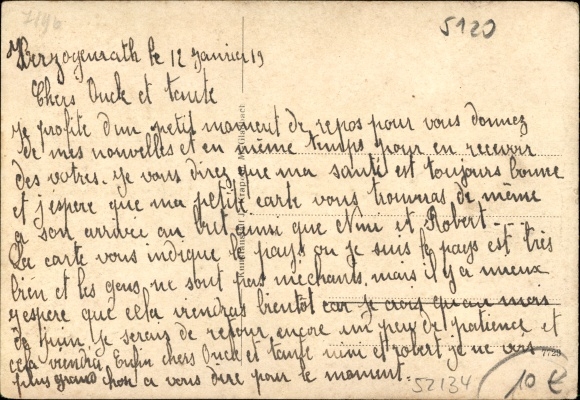 7196
5120
Herzogenrath le 12 Janvier 19
Chers Oncle et tante
Je profite d'un petit moment de repos pour vous donnez
de mes nouvelles et en même temps pour en recevoir
des votres. Je vous direz que ma santé est toujours bonne
et j'espere que ma petite carte vous trouvras de même
a son arrivée au but ainsi que Nini et Robert
La carte vous indique le pays ou je suis le pays est très
bien et les gens ne sont pas méchants mais il y a mieux
j'espere que cela viendras bientot car je crois qu'au mois
de juin je serais de retour, encore un peu de patience et
cela viendra Enfin chers Oncle et tante nini et robert je ne vois
plus grand chose a vous dire pour le moment.
7729
52134
10 €